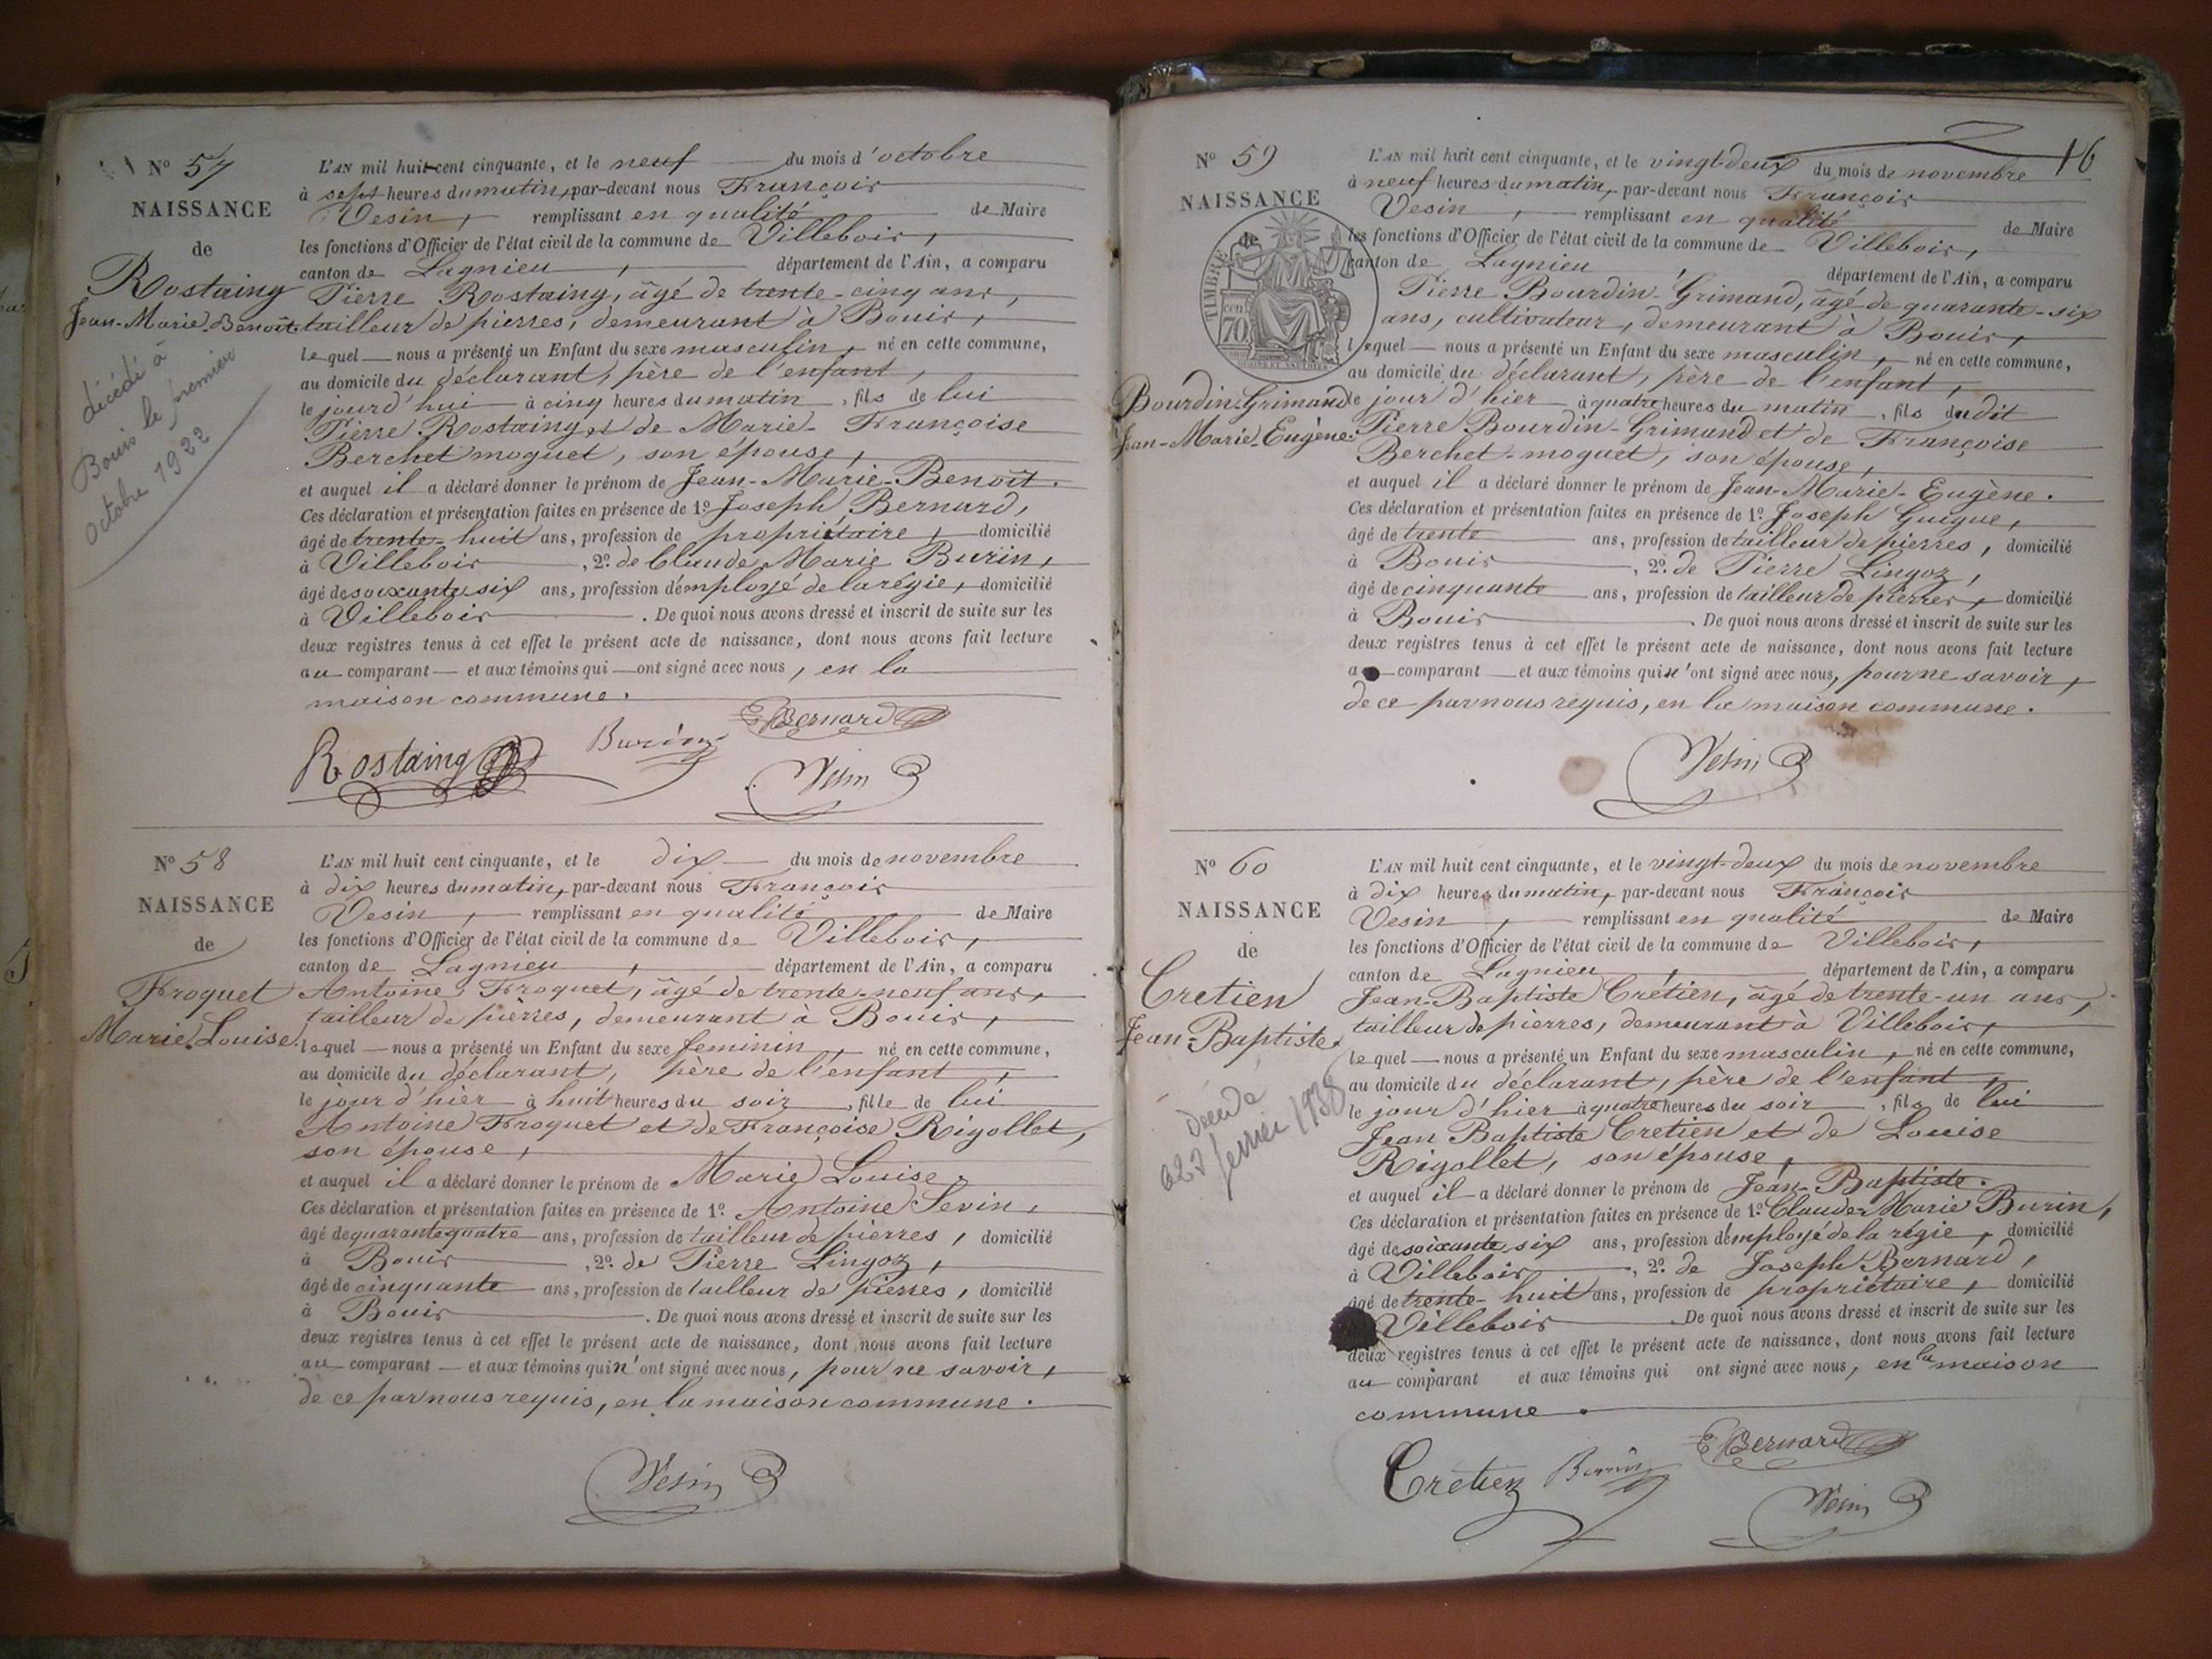 Nº 57
NAISSANCE
de
Rostaing
Jean-Marie-Benoît.
décédé à
Bouis le premier
octobre 1922
L'AN mil huit cent cinquante, et le neuf du mois d'octobre
à sept heures du matin, par-devant nous François
Vesin, remplissant en qualité de Maire
les fonctions d'Officier de l'état civil de la commune de Villebois,
canton de Lagnieu, département de l'Ain, a comparu
Pierre Rostaing, âgé de trente-cinq ans,
tailleur de pierres, demeurant à Bouis,
lequel nous a présenté un Enfant du sexe masculin, né en cette commune,
au domicile du déclarant, père de l'enfant,
le jourd'hui à cinq heures du matin, fils de lui
Pierre Rostaing et de Marie-Françoise
Berchet moguet, son épouse,
et auquel il a déclaré donner le prénom de Jean-Marie-Benoît.
Ces déclaration et présentation faites en présence de 1º Joseph Bernard,
âgé de trente-huit ans, profession de propriétaire, domicilié
à Villebois, 2º de Claude Marie Burin,
âgé de soixante six ans, profession d'employé de la régie, domicilié
à Villebois. De quoi nous avons dressé et inscrit de suite sur les
deux registres tenus à cet effet le présent acte de naissance, dont nous avons fait lecture
au comparant et aux témoins qui ont signé avec nous, en la
maison commune.
Rostaing Burin E Bernard
Vesin
Nº 58
NAISSANCE
de
Froquet
Marie Louise.
L'AN mil huit cent cinquante, et le dix du mois de novembre
à dix heures du matin, par-devant nous François
Vesin, remplissant en qualité de Maire
les fonctions d'Officier de l'état civil de la commune de Villebois,
canton de Lagnieu, département de l'Ain, a comparu
Antoine Froquet, âgé de trente-neuf ans,
tailleur de pierres, demeurant à Bouis,
lequel nous a présenté un Enfant du sexe feminin, né en cette commune,
au domicile du déclarant, père de l'enfant,
le jour d'hier à huit heures du soir, fille de lui
Antoine Froquet et de Françoise Rigollet,
son épouse,
et auquel il a déclaré donner le prénom de Marie Louise.
Ces déclaration et présentation faites en présence de 1º. Antoine Sevin,
âgé de quarante quatre ans, profession de tailleur de pierres, domicilié
à Bouis, 2º. de Pierre Lingoz,
âgé de cinquante ans, profession de tailleur de pierres, domicilié
à Bouis. De quoi nous avons dressé et inscrit de suite sur les
deux registres tenus à cet effet le présent acte de naissance, dont nous avons fait lecture
au comparant et aux témoins qui n'ont signé avec nous, pour ne savoir,
de ce par nous requis, en la maison commune.
Vesin
16
Nº 59
NAISSANCE
de
TIMBRE
70 cen
Bourdin-Grimand
Jean-Marie-Eugène.
L'AN mil huit cent cinquante, et le vingt-deux du mois de novembre
à neuf heures du matin, par-devant nous François
Vesin, remplissant en qualité de Maire
les fonctions d'Officier de l'état civil de la commune de Villebois,
canton de Lagnieu, département de l'Ain, a comparu
Pierre Bourdin-Grimand, âgé de quarante-six
ans, cultivateur, demeurant à Bouis,
lequel nous a présenté un Enfant du sexe masculin, né en cette commune,
au domicile du déclarant, père de l'enfant,
le jour d'hier à quatre heures du matin, fils dudit
Pierre Bourdin-Grimand et de Françoise
Berchet-moguet, son épouse,
et auquel il a déclaré donner le prénom de Jean-Marie-Eugène.
Ces déclaration et présentation faites en présence de 1º. Joseph Guigue,
âgé de trente ans, profession de tailleur de pierres, domicilié
à Bouis, 2º. de Pierre Lingoz,
âgé de cinquante ans, profession de tailleur de pierres, domicilié
à Bouis. De quoi nous avons dressé et inscrit de suite sur les
deux registres tenus à cet effet le présent acte de naissance, dont nous avons fait lecture
a comparant et aux témoins qui n'ont signé avec nous, pour ne savoir,
de ce par nous requis, en la maison commune.
Vesin
Nº 60
NAISSANCE
de
Cretien
Jean-Baptiste.
décédé
février 1938
L'AN mil huit cent cinquante, et le vingt-deux du mois de novembre
à dix heures du matin, par-devant nous François
Vesin, remplissant en qualité de Maire
les fonctions d'Officier de l'état civil de la commune de Villebois,
canton de Lagnieu, département de l'Ain, a comparu
Jean-Baptiste Crétien, âgé de trente-un ans,
tailleur de pierres, demeurant à Villebois,
lequel nous a présenté un Enfant du sexe masculin, né en cette commune,
au domicile du déclarant, père de l'enfant,
le jour d'hier à quatre heures du soir, fils de lui
Jean Baptiste Cretien et de Louise
Rigollet, son épouse,
et auquel il a déclaré donner le prénom de Jean-Baptiste.
Ces déclaration et présentation faites en présence de 1º Claude-Marie Burin,
âgé de soixante six ans, profession d'employé de la régie, domicilié
à Villebois, 2º. de Joseph Bernard,
âgé de trente-huit ans, profession de propriétaire, domicilié
Villebois De quoi nous avons dressé et inscrit de suite sur les
deux registres tenus à cet effet le présent acte de naissance, dont nous avons fait lecture
au comparant et aux témoins qui ont signé avec nous, en la maison
commune.
Crétien Burin E Bernard
Vesin